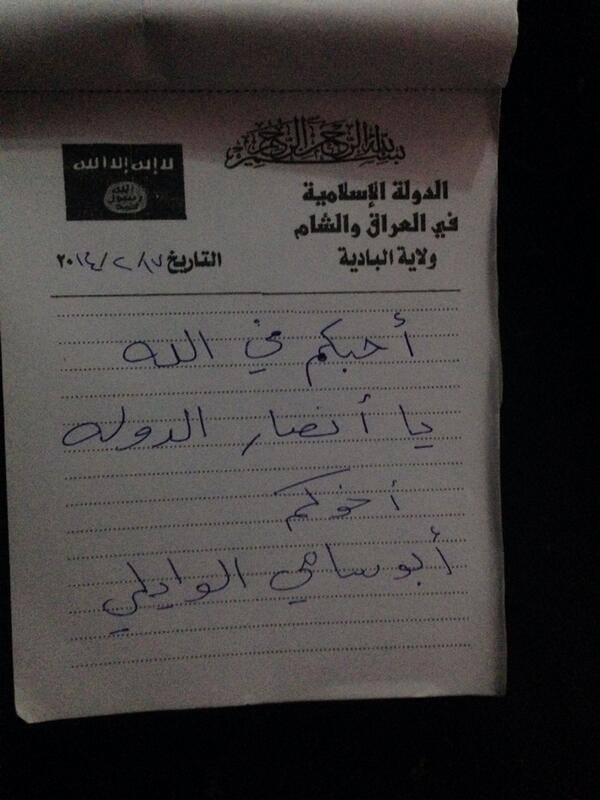 بسم الله الرحمن الرحيم
لا إله إلا الله
الله
رسول
محمد
الدولة الإسلامية
في العراق والشام
ولاية البادية
التاريخ ٢٠١٤/٢/١٧
أحبكم في الله
يا أنصار الدوله
أخوكم
أبو سامي